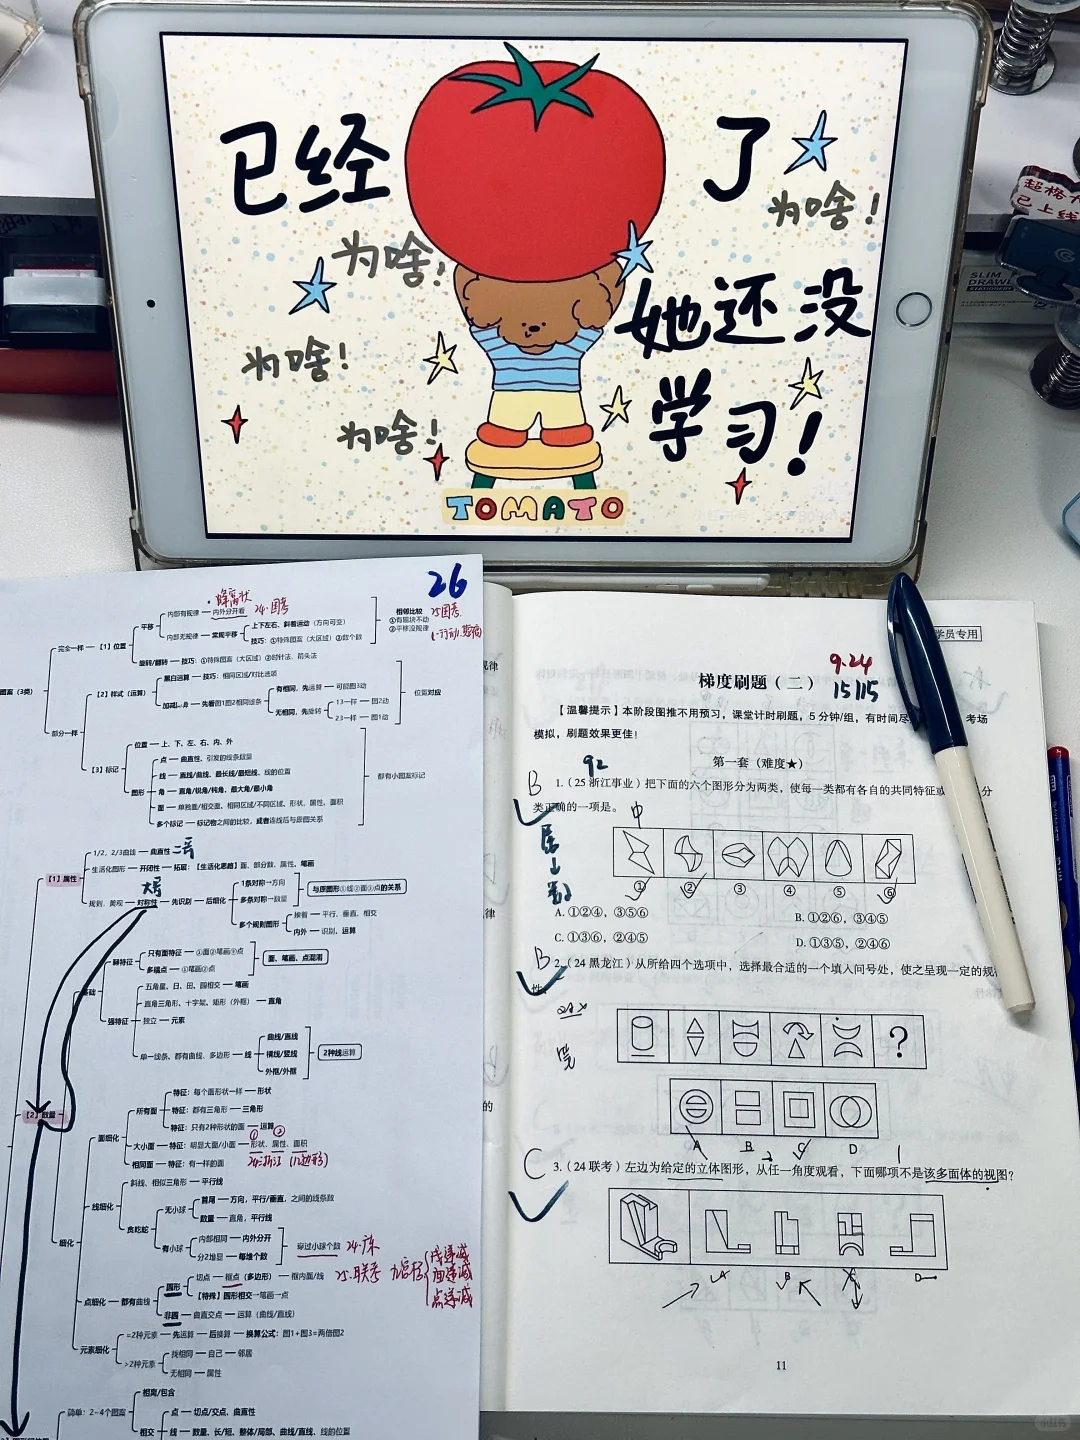 已经 了
为啥！
为啥！
她还没
为啥！
学习！
为啥！
TOMATO
超格
已上线
SLIM
26
蜂窝状
内部有规律
内外分开看
24·国考
平移
内部无规律
常规平移
上下左右、斜着运动（方向可变）
技巧：①特殊图案（大区域）②数个数
相邻比较
①有黑块不动
②平移没规律
25国考
完全一样
【1】位置
旋转/翻转
技巧：①特殊图案（大区域）②时针法、箭头法
图案（3类）
【2】样式（运算）
黑白运算
技巧：相同区域/对比选项
先看图1图2相同线条
有相同，先运算
可能图3动
无相同，先旋转
13一样
图2动
23一样
图1动
位置对应
部分一样
【3】标记
位置
上、下、左、右、内、外
图形
点
曲直性、引发的线条数量
线
直线/曲线、最长线/最短线、线的位置
角
直角/锐角/钝角、最大角/最小角
面
单独面/相交面、相同区域/不同区域、形状、属性、面积
多个标记
标记物之间的比较，或者连线后与原图关系
都有小图案标记
1/2、2/3曲线
曲直性
【1】属性
生活化图形
开闭性
拓展：【生活化思路】面、部分数、属性、笔画
规则、美观
对称性
先识别
后细化
1条对称→方向
多条对称→数量
与原图形①线②面③点的关系
多个规则图形
挨着
平行、垂直、相交
内外
识别、运算
弱特征
只有面特征
①面②笔画③点
多端点
①笔画②点
面、笔画、点混淆
基础
强特征
五角星、日、田、圆相交
笔画
直角三角形、十字架、矩形（外框）
直角
独立
元素
单一线条、都有曲线、多边形
线
曲线/直线
横线/竖线
外框/外框
2种线运算
【2】数量
面细化
所有面
特征：每个面形状一样
形状
特征：都有三角形
三角形
特征：只有2种形状的面
运算
大小面
特征：明显大面/小面
形状、属性、面积
① ②
相同面
特征：有一样的面
24浙江（12边形）
细化
线细化
斜线、相似三角形
平行线
贪吃蛇
无小球
首尾
方向，平行/垂直，之间的线条数
数量
直角，平行线
有小球
内部相同
内外分开
分2堆是
每堆个数
穿过小球个数
24·广东
点细化
都有曲线
圆形
切点
框点（多边形）
框内面/线
25·联考
九宫格
线递减
面递减
点递减
【特殊】圆形相交
笔画
点
非圆
曲直交点
运算（曲线/直线）
元素细化
=2种元素
先运算
后换算
换算公式：图1+图3=两倍图2
>2种元素
找相同
自己
邻居
无相同
属性
简单：2-4个图案
相离/包含
相交
点
切点/交点、曲直性
线
数量、长/短、整体/局部、曲线/直线、线的位置
学员专用
9.24
梯度刷题（二）
15/15
【温馨提示】本阶段图推不用预习，课堂计时刷题，5 分钟/组，有时间尽 考场
模拟，刷题效果更佳！
第一套（难度★）
92
B
1.（25 浙江事业）把下面的六个图形分为两类，使每一类都有各自的共同特征或 分
类正确的一项是。
中
① ② ③ ④ ⑤ ⑥
A. ①②④，③⑤⑥
B. ①②⑥，③④⑤
C. ①③⑥，②④⑤
D. ①③⑤，②④⑥
B
2.（24 黑龙江）从所给四个选项中，选择最合适的一个填入问号处，使之呈现一定的规律
性。
?
A B C D
C
3.（24 联考）左边为给定的立体图形，从任一角度观看，下面哪项不是该多面体的视图？
A B C D
11